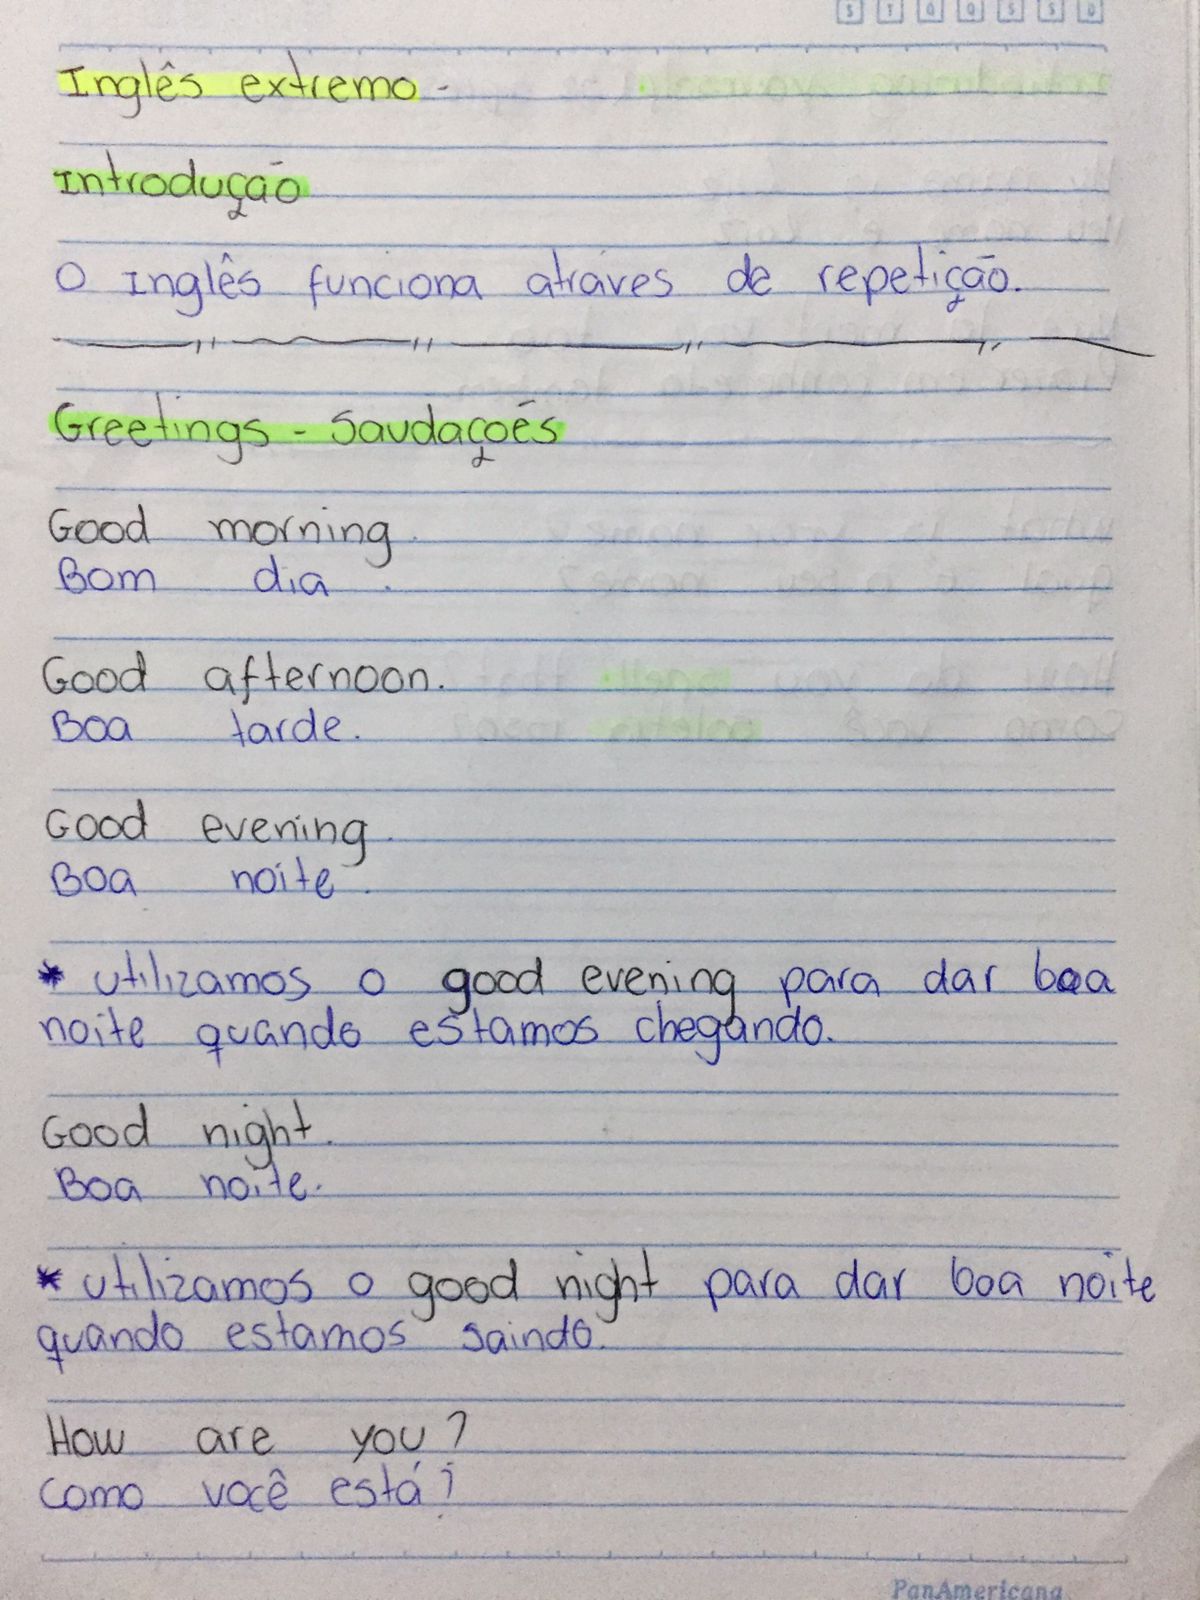 S T Q Q S S D
Inglês extremo -
Introdução
O Inglês funciona através de repetição.
Greetings - Saudações
Good morning.
Bom dia.
Good afternoon.
Boa tarde.
Good evening.
Boa noite.
* utilizamos o good evening para dar boa
noite quando estamos chegando.
Good night.
Boa noite.
* utilizamos o good night para dar boa noite
quando estamos saindo.
How are you?
Como você está?
PanAmericana